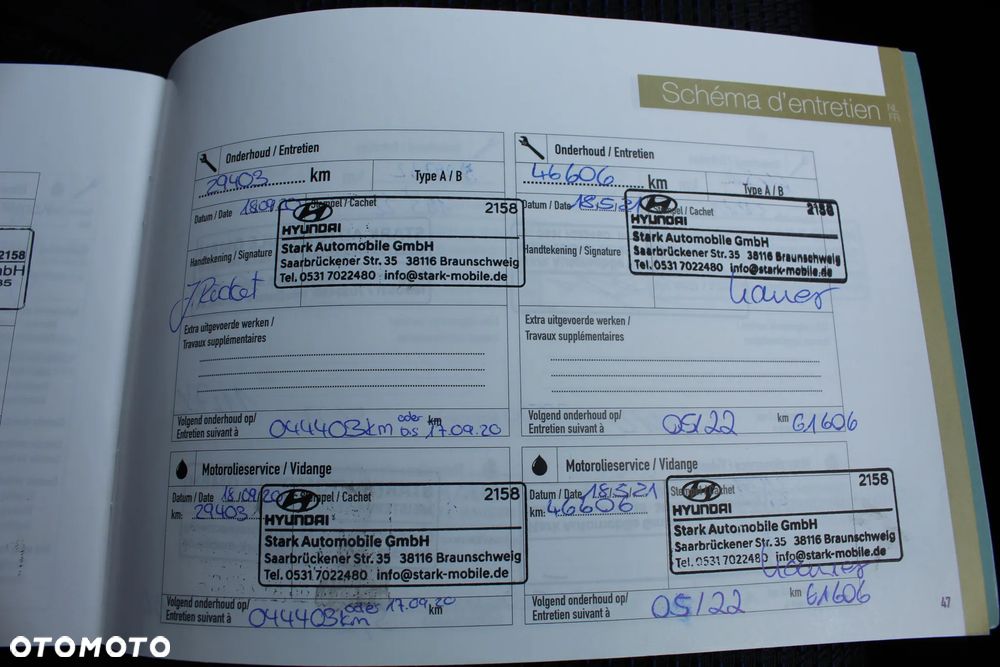 Schéma d'entretien
NL
FR
Onderhoud / Entretien
29403 km
Type A / B
Datum / Date
Stempel / Cachet
2158
HYUNDAI
Stark Automobile GmbH
Saarbrückener Str. 35 38116 Braunschweig
Tel. 0531 7022480 info@stark-mobile.de
Handtekening / Signature
Extra uitgevoerde werken /
Travaux supplémentaires
Volgend onderhoud op/
Entretien suivant à
044403km oder km
bis 17.09.20
Onderhoud / Entretien
46606 km
Type A / B
Datum / Date 18.5.21
Stempel / Cachet
2158
HYUNDAI
Stark Automobile GmbH
Saarbrückener Str. 35 38116 Braunschweig
Tel. 0531 7022480 info@stark-mobile.de
Handtekening / Signature
Extra uitgevoerde werken /
Travaux supplémentaires
Volgend onderhoud op/
Entretien suivant à
05/22 km 61606
Motorolieservice / Vidange
Datum / Date 18.09.20
Stempel / Cachet
km: 29403
2158
HYUNDAI
Stark Automobile GmbH
Saarbrückener Str. 35 38116 Braunschweig
Tel. 0531 7022480 info@stark-mobile.de
Volgend onderhoud op/
Entretien suivant à
044403km oder 17.09.20 km
Motorolieservice / Vidange
Datum / Date 18.5.21
km: 46606
2158
HYUNDAI
Stark Automobile GmbH
Saarbrückener Str. 35 38116 Braunschweig
Tel. 0531 7022480 info@stark-mobile.de
Volgend onderhoud op/
Entretien suivant à
05/22 km 61606
47
2158
OTOMOTO